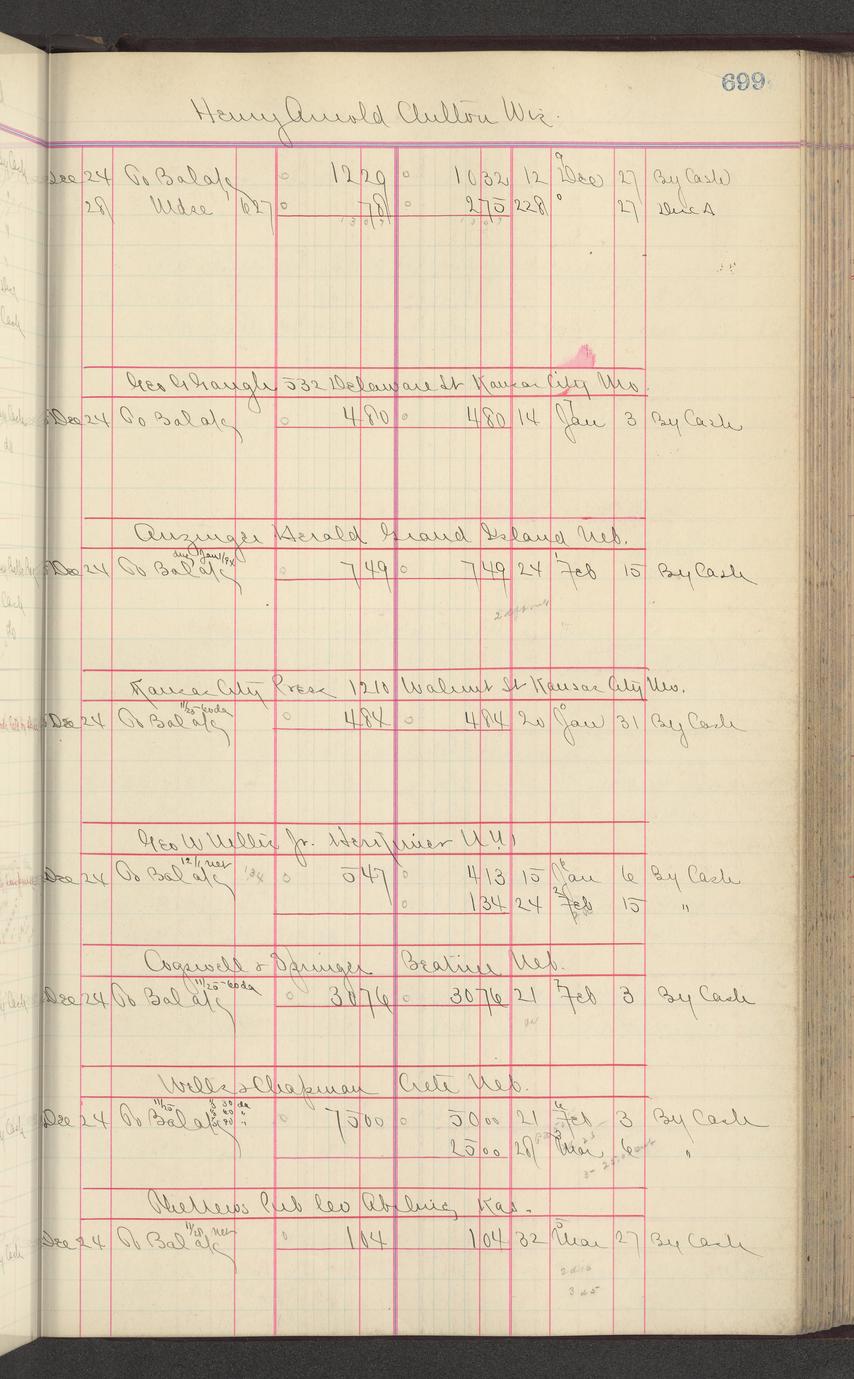 699
Henry Arnold Chilton Wis.
Dec 24 To Bal a/c 12 29 10 32 12 9 Dec 27 By Cash
28 Mdse 627 78 2 75 228 27 Disc A
532 Delaware St Kansas City Mo.
Dec 24 To Bal a/c 4 80 4 80 14 7 Jan 3 By Cash
Anzinger Herald Grand Island Neb.
Dec 24 To Bal a/c 7 49 7 49 24 1 Feb 15 By Cash
Kansas City Press 1210 Walnut St Kansas City Mo.
11/25 60 da
Dec 24 To Bal a/c 4 84 4 84 20 Jan 31 By Cash
Geo W Jr. Herkimer N.Y.
12/1 net
Dec 24 To Bal a/c 134 5 47 4 13 15 6 Jan 6 By Cash
1 34 24 2 Feb 15 "
Cogswell & Springer Beatrice Neb.
11/25 60 da
Dec 24 To Bal a/c 30 76 30 76 21 7 Feb 3 By Cash
Wells & Chapman Crete Neb.
Dec 24 To Bal a/c 75 00 50 00 21 6 Feb 3 By Cash
25 00 28 3 Mar 6 "
The News Pub Co Abilene Kas.
11/28 net
Dec 24 To Bal a/c 1 04 1 04 32 5 Mar 27 By Cash